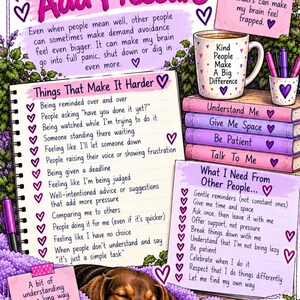 Add Pressure
Even when people mean well, other people
can sometimes make demand avoidance
feel even bigger. It can make my brain
go into full panic, shut down or dig in
even more.
can make
my brain feel
trapped.
Kind
People
Make
A Big
Difference
Things That Make It Harder
Being reminded over and over
People asking "have you done it yet?"
Being watched while I'm trying to do it
Someone standing there waiting
Feeling like I'll let someone down
People raising their voice or showing frustration
Being given a deadline
Feeling like I'm being judged
Well-intentioned advice or suggestions
that add more pressure
Comparing me to others
People doing it for me (even if it's quicker)
Feeling like I have no choice
When people don't understand and say
"it's just a simple task"
Understand Me
Give Me Space
Be Patient
Talk To Me
What I Need From
Other People...
Gentle reminders (not constant ones)
Give me time and space
Ask once, then leave it with me
Offer support, not pressure
Break things down with me
Understand that I'm not being lazy
Be patient
Celebrate when I do it
Respect that I do things differently
Let me find my own way
A bit of
understanding
long way